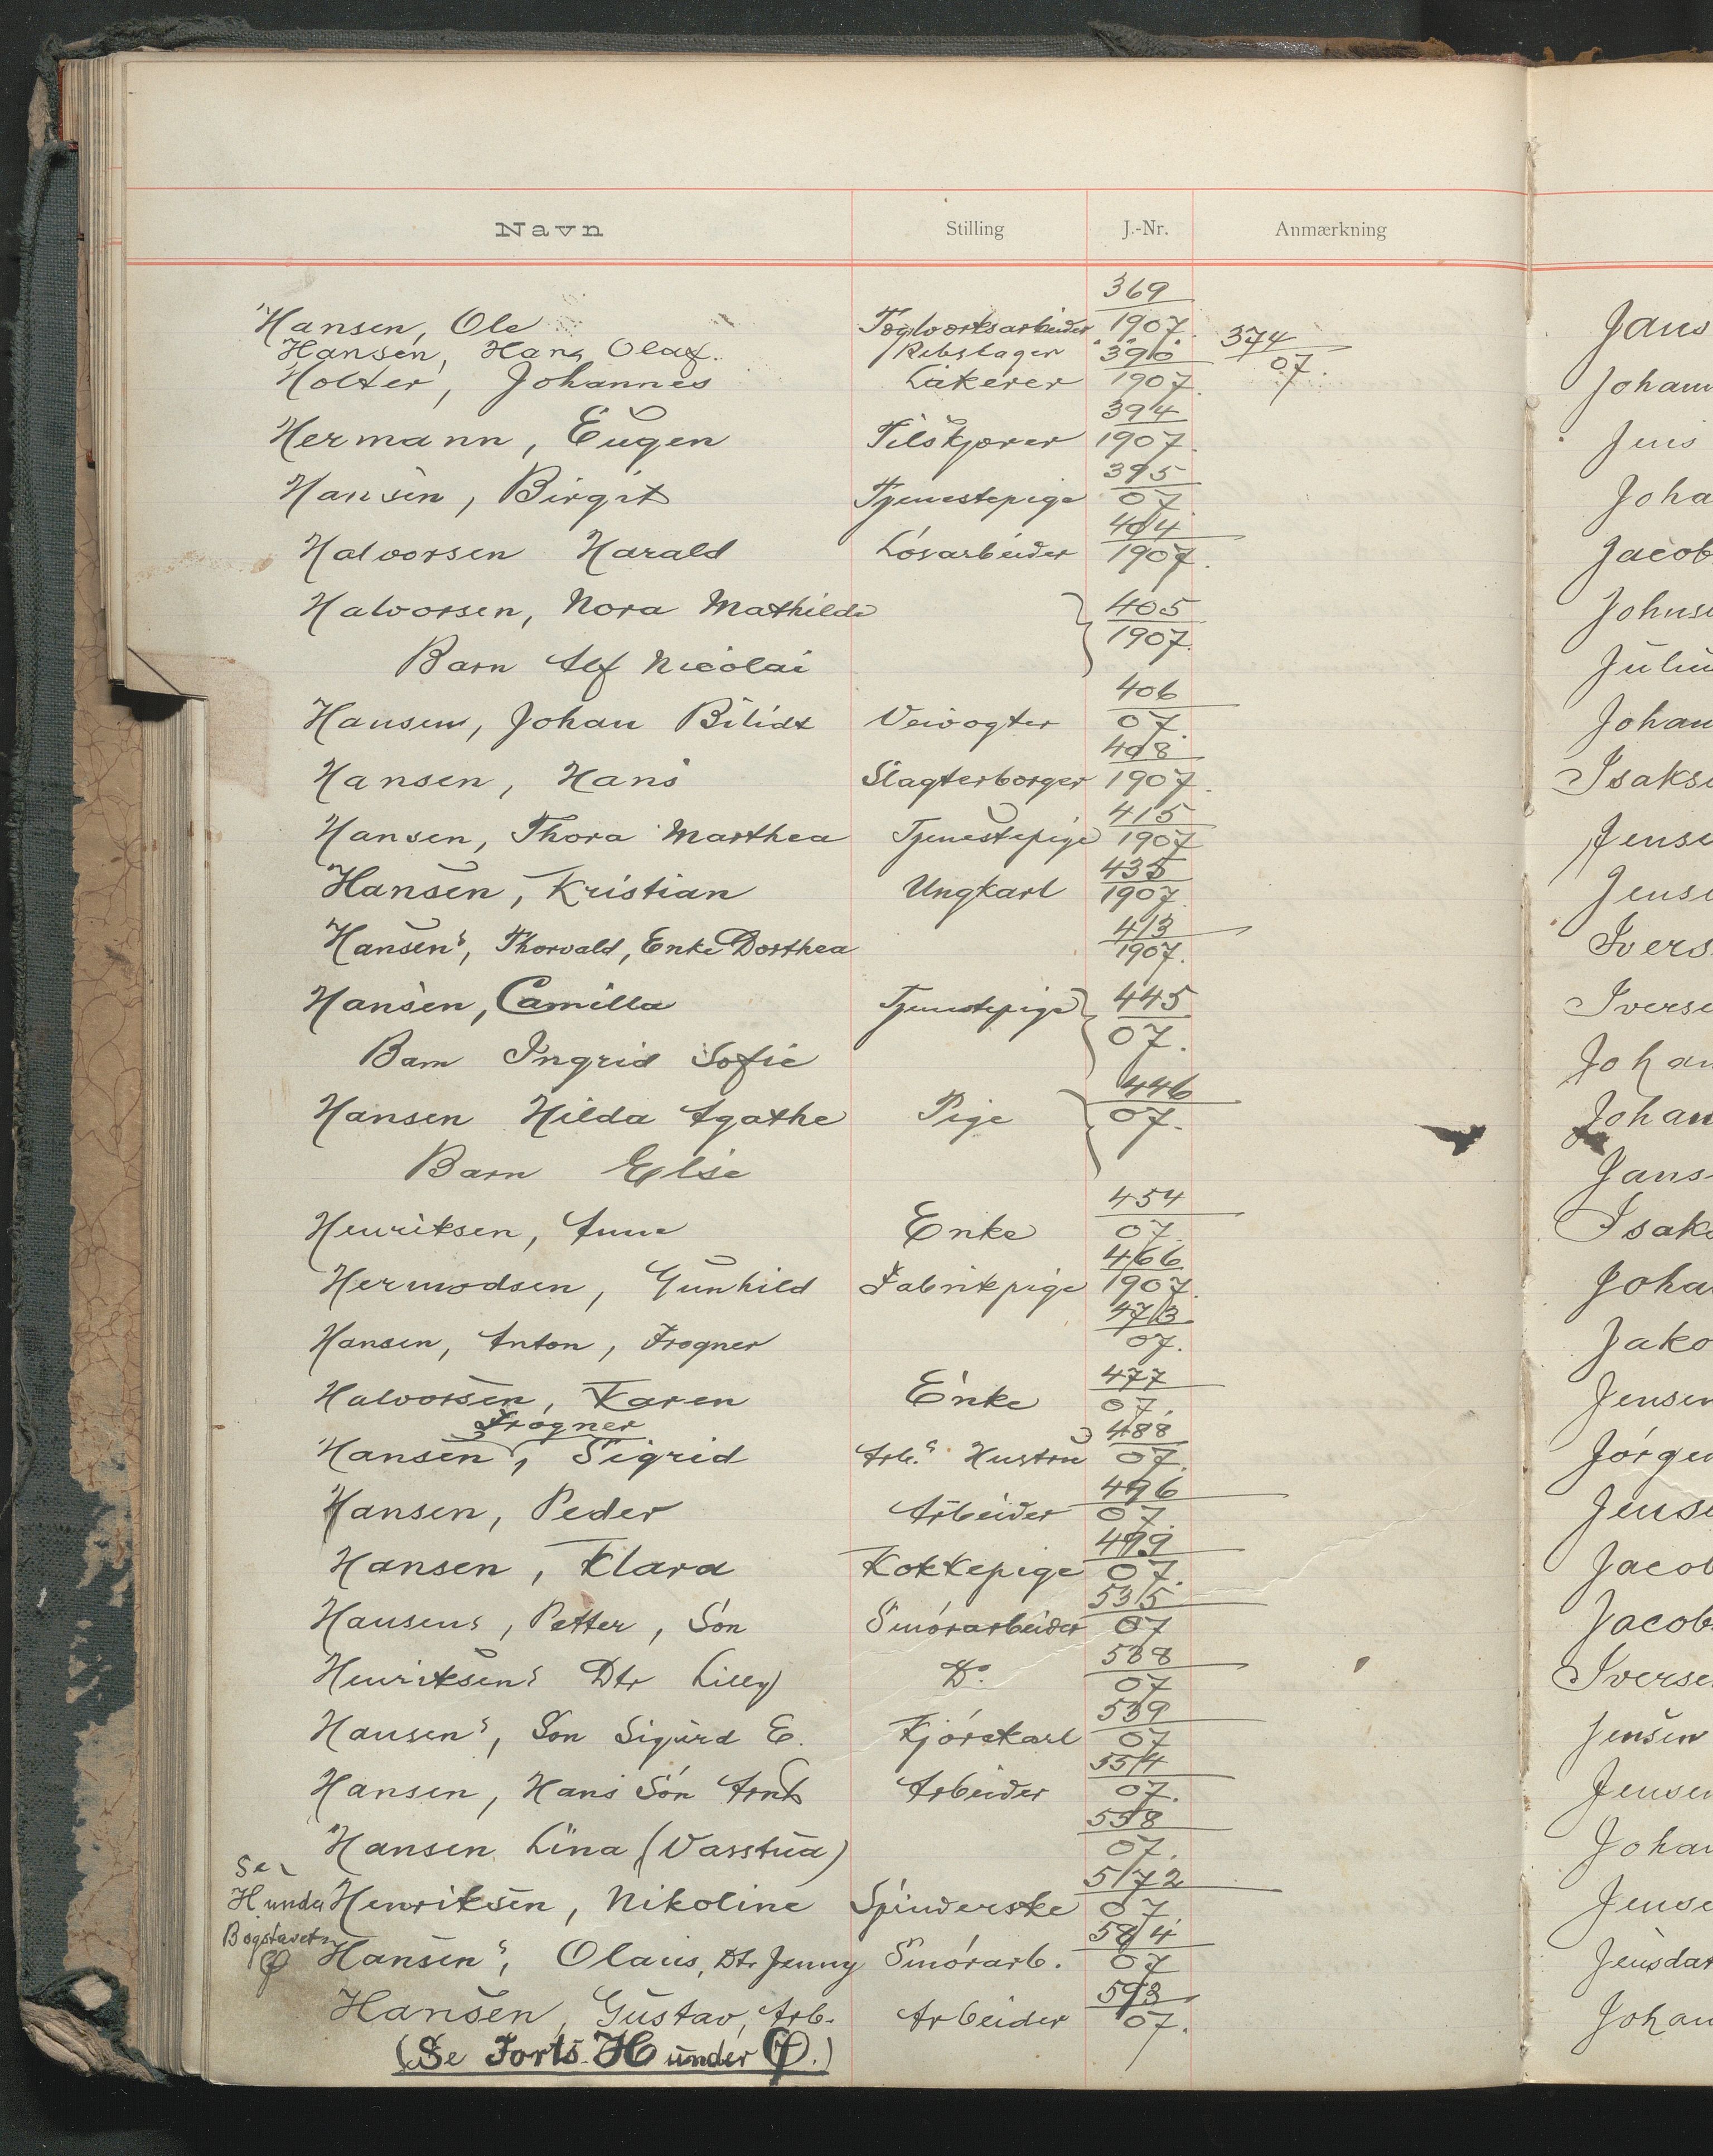 Navn Stilling J.-Nr. Anmærkning
369
Hansen, Ole Teglværksarbeider 1907.
Hansen, Hans Olaf. Rebslager 374
07.
390
Holter, Johannes Lakerer 1907.
394
Hermann, Eugen Tilskjærer 1907.
395
Hansen, Birgit Tjenestepige 07
404
Halvorsen Harald Løsarbeider 1907.
Halvorsen, Nora Mathilde 405
1907.
Barn Alf Nicolai
406
Hansen, Johan Bilidt Veivogter 07.
408
Hansen, Hans Slagterborger 1907.
415
Hansen, Thora Marthea Tjenestepige 1907
435
Hansen, Kristian Ungkarl 1907
413
Hansens, Thorvald, Enke Dorthea 1907.
Hansen, Camilla Tjenestepige 445
07.
Barn Ingrid Sofie
446
Hansen Hilda Agathe Pige 07.
Barn Else
454
Henriksen, Anne Enke 07.
466
Hermodsen, Gunhild Fabrikpige 1907.
473
Hansen, Anton, Frogner 07.
477
Halvorsen, Karen Enke 07.
Frogner 488
Hansen, Sigrid Arb.s Hustru 07.
496
Hansen, Peder Arbeider 07.
499
Hansen, Klara Kokkepige 07.
535
Hansens, Petter, Søn Smørarbeider 07
538
Henriksens Dtr Lilly Do. 07
539
Hansens, Søn Sigurd E. Kjørekarl 07
554
Hansen, Hans Søn Arnt Arbeider 07.
558
Hansen Lina (Vasstua) 07.
Se 572
H under Henriksen, Nikoline Spinderske 07
Bogstavet 584
Q Hansens, Olaus, Dtr Jenny Smørarb. 07
593
Hansen, Gustav, Arb. Arbeider 07.
(Se Forts. H under Q.)
Jans
Johann
Jens
Joha
Jacob
Johns
Juliu
Johan
Isaks
Jense
Jense
Ivers
Iverse
Johan
Johan
Jans
Isak
Joha
Jako
Jensen
Jørgen
Jense
Jacob
Jacob
Iverse
Jensen
Jensen
Johan
Jense
Jensdat
Johan